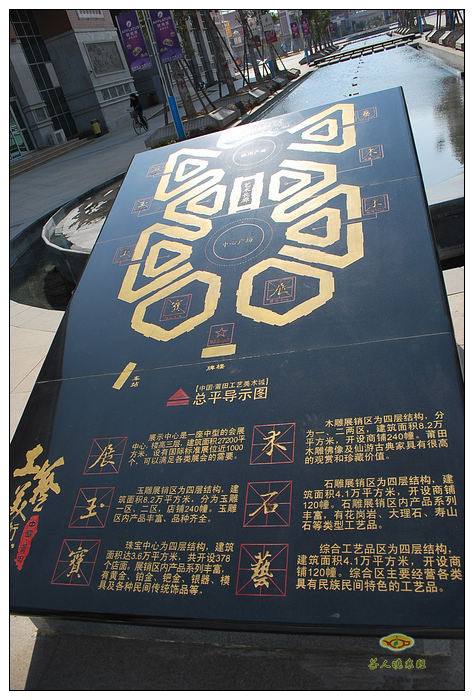 中心广场
艺术长廊
玉
玉
木
木
寳
展
牌楼
车站
【中国·莆田工艺美术城】
总平导示图
展
展示中心是一座中型的会展
中心，楼高三层，建筑面积27200平
方米，设有国际标准展位近1000
个，可以满足各类展会的需要。
木
木雕展销区为四层结构，分
为一、二两区，建筑面积8.2万
平方米，开设商铺240幢。莆田
木雕佛像及仙游古典家具有很高
的观赏和珍藏价值。
玉
玉雕展销区为四层结构，建
筑面积8.2万平方米，分为玉雕
一区、二区，店铺240幢。玉雕
区内产品丰富、品种齐全。
石
石雕展销区为四层结构，建
筑面积4.1万平方米，开设商铺
120幢。石雕展销区内产品系列
丰富，有花岗岩、大理石、寿山
石等类型工艺品。
寳
珠宝中心为四层结构，建筑
面积达3.6万平方米，共开设378
个店面。展销区内产品系列丰富，
有黄金、铂金、钯金、银器、模
具及各种民间传统饰品等。
藝
综合工艺品区为四层结构，
建筑面积4.1万平方米，开设商
铺120幢。综合区主要经营各类
具有民族民间特色的工艺品。
工艺
美